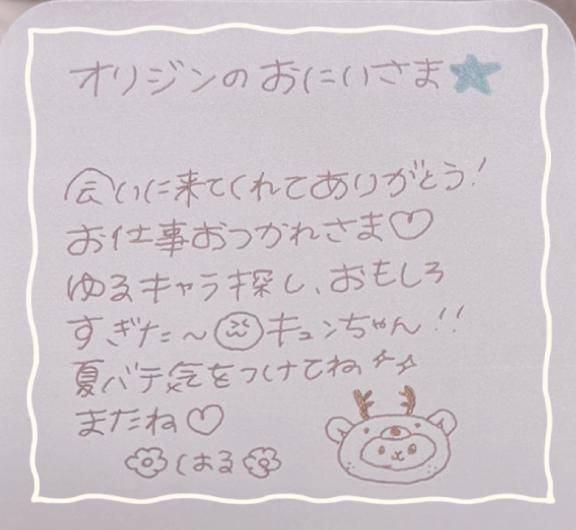 オリジンのおにいさま
会いに来てくれてありがとう!
お仕事おつかれさま♡
ゆるキャラ探し、おもしろ
すぎた〜キュンちゃん!!
夏バテ気をつけてね
またね♡
くはる